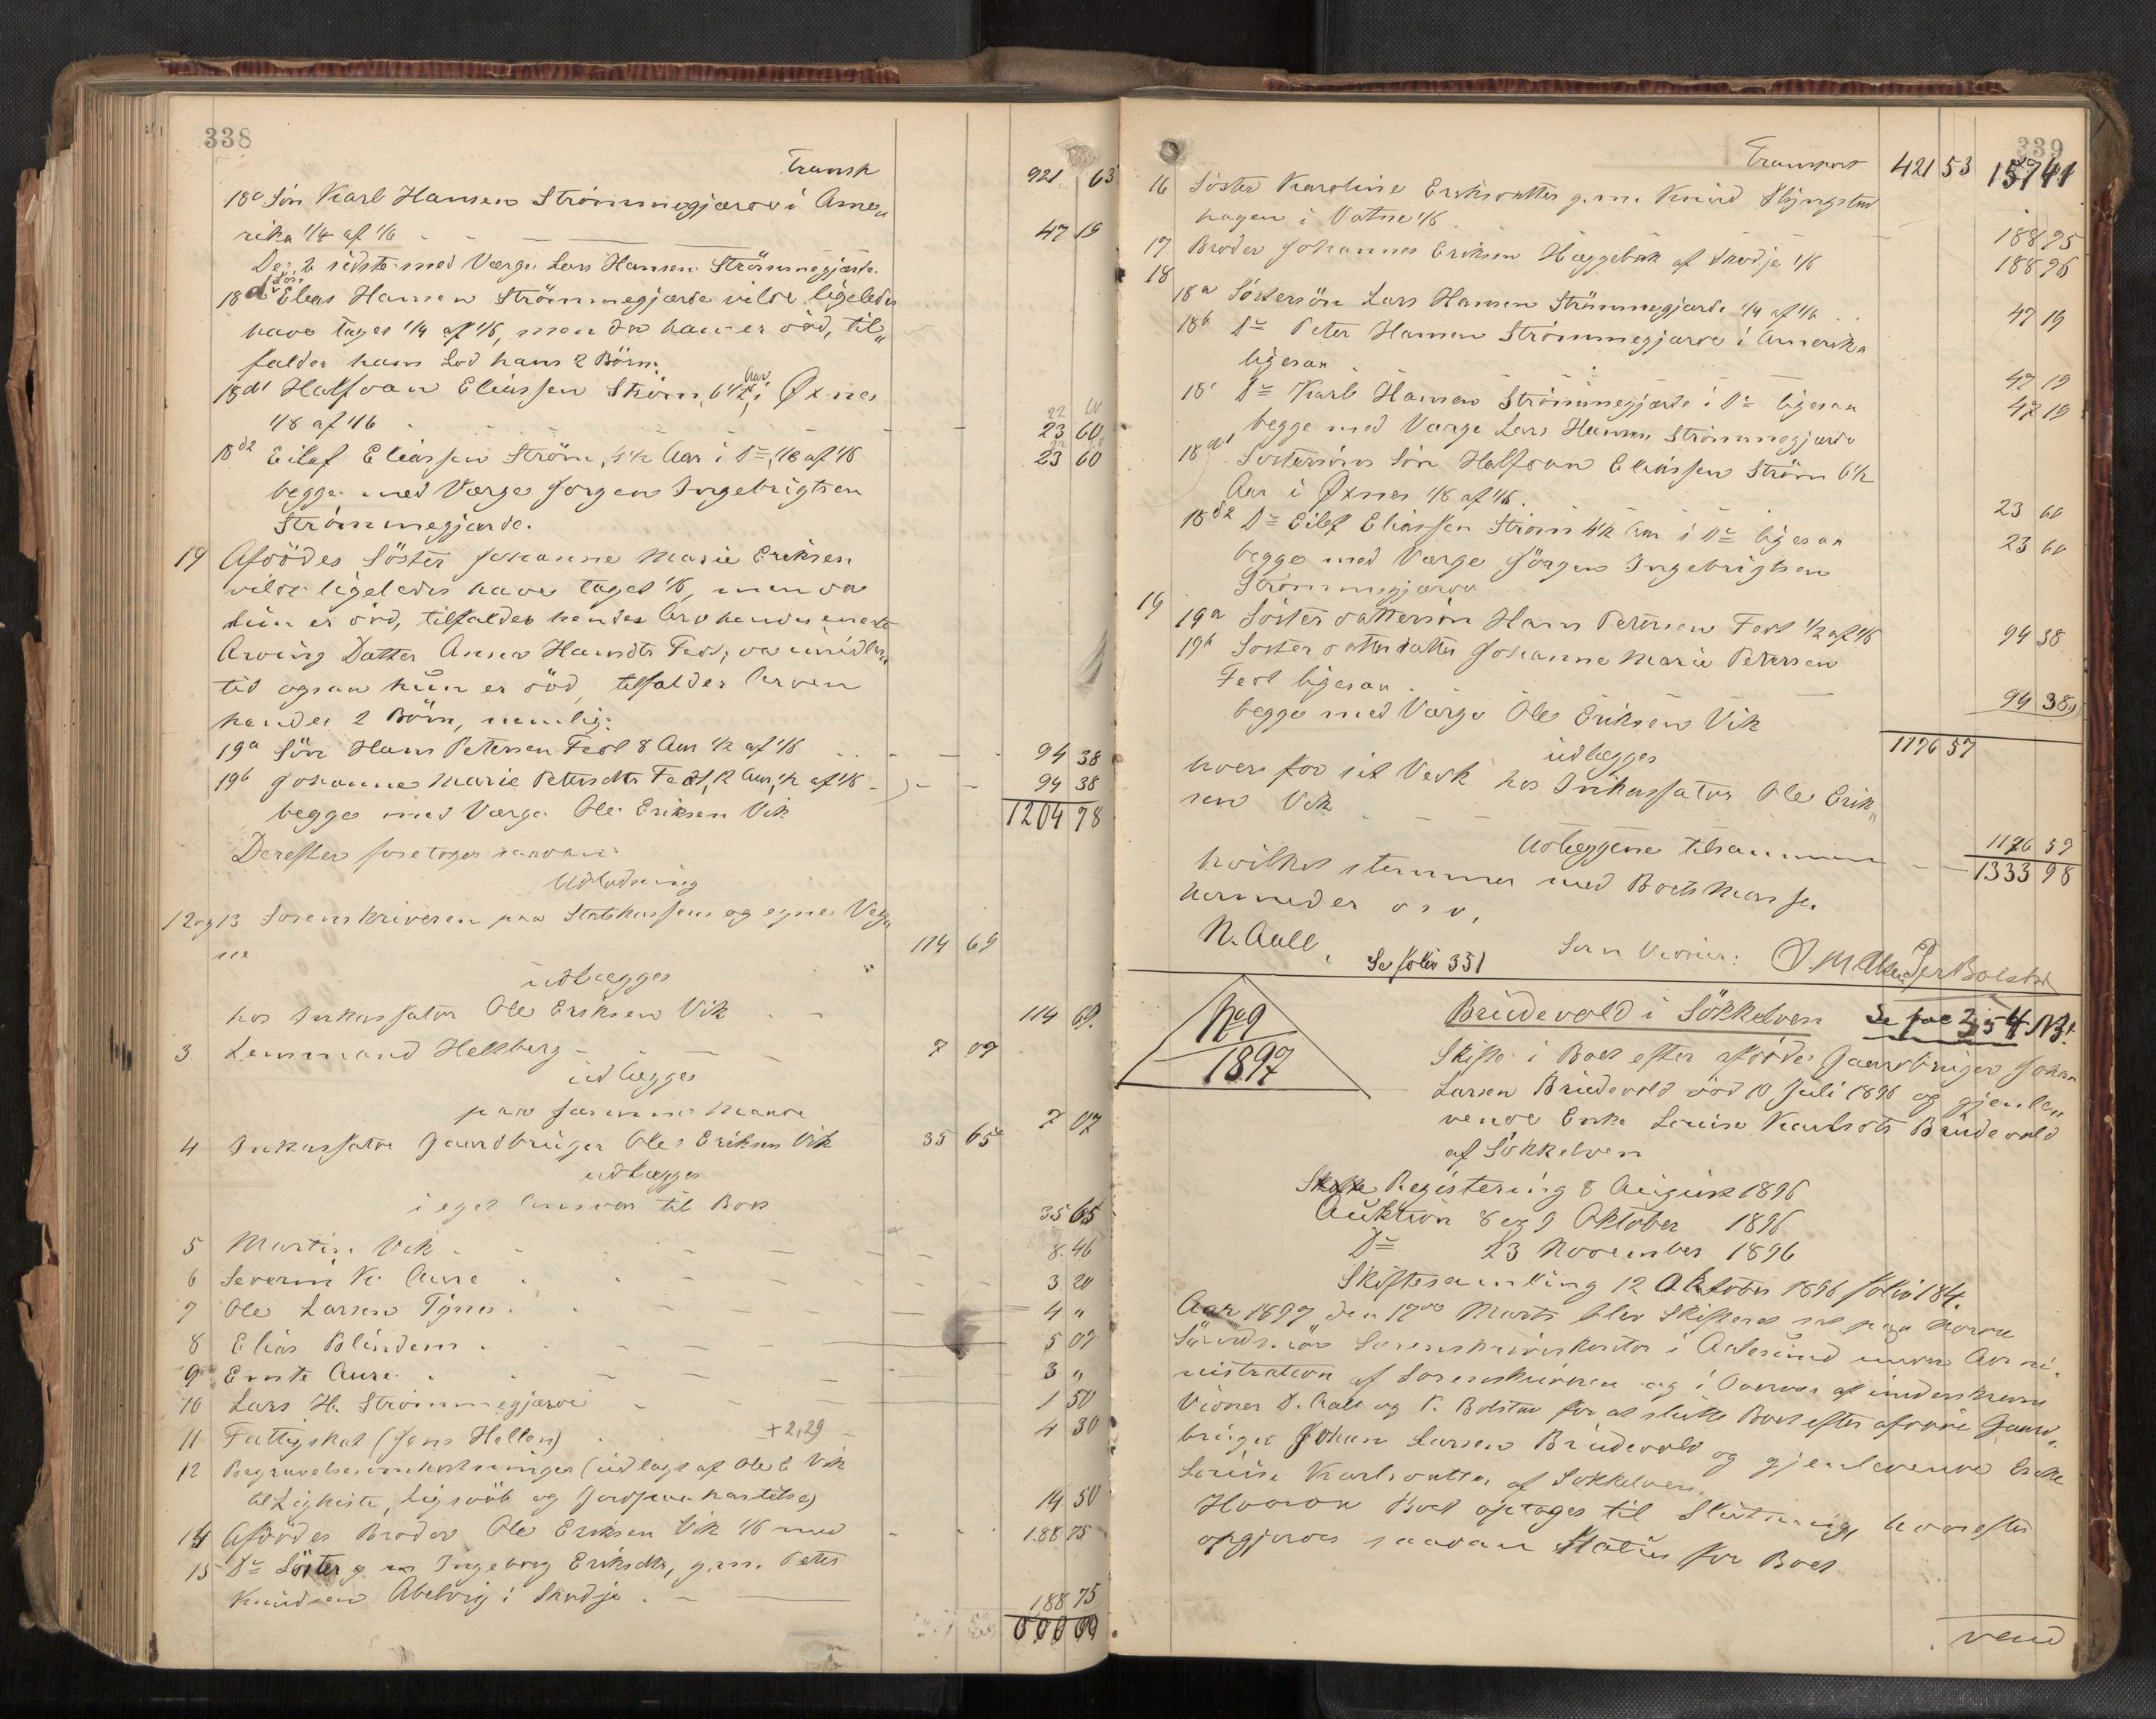 338
Transp 921 63
18c Søn Karl Hansen Strømmegjærde i Ame„
rika 1/4 af 1/6 47 19
De 2 sidste med Værge Lars Hansen Strømmegjærde.
18d Søn Elias Hansen Strømmegjærde vilde ligeledes
have taget 1/4 af 1/6, men da han er død, til„
falder hans Lod hans 2 Børn:
18d1 Halfdan Eliassen Strøm, 6 1/2 Aar i Øxnes
1/8 af 1/6 23 60
18d2 Eilef Eliassen Strøm, 4 1/2 Aar i Do, 1/8 af 1/6 23 60
begge med Værge Jørgen Ingebrigtsen
Strømmegjærde.
19 Afdødes Søster Johanne Marie Eriksen
vilde ligeledes have taget 1/6, men da
hun er død, tilfalder hendes Arv hendes eneste
Arving Datter Anna Hansdtr Fedt, da imidler„
tid ogsaa hun er død, tilfalder Arven
hendes 2 Børn, nemlig:
19a Søn Hans Petersen Fedt 8 Aar 1/2 af 1/6 94 38
19b Johanne Marie Petersdtr Fedt, 12 Aar, 1/2 af 1/6 94 38
begge med Værge Ole Eriksen Vik 1204 98
Derefter foretoges saadan
Udlodning
12 og 13 Sorenskriveren paa Statskassens og egne Veg„
ne 114 69
udlægges
hos Inkassator Ole Eriksen Vik 114 69.
3 Lensmand Hellberg 7 07
udlægges
paa samme Maade 7 07
4 Inkassator Gaardbruger Ole Eriksen Vik 35 65
udlægges
i eget Ansvar til Boet 35 65
5 Martin Vik 8.46
6 Severin K. Aure 3 20
7 Ole Larsen Tynes 4 „
8 Elias Blindem 5 07
9 Ernte Aure 3 „
10 Lars H. Strømmegjærde 1 50
11 Fattigskat (Jens Hellen) + 2,29 4 30
12 Begravelsesomkostninger (udlagt af Ole E Vik
til Ligkiste, Ligsvøb og Jordpaakastelse) 14 50
14 Afdødes Broder Ole Eriksen Vik 1/6 med 188 75
15 Do Søster Ingeborg Eriksdtr, g.m. Peter
Knudsen Abelvig i Skodje 188 75
339
Transport 421 53 157 41
16 Søster Karoline Eriksdatter g.m. Knud Slyngstad
hagen i Vatne 1/6 188 75
17 Broder Johannes Eriksen Hæggebak af Skodje 1/6 188 76
18
18a Søstersøn Lars Hansen Strømmegjærde 1/4 af 1/6 47 19
18b Do Peter Hansen Strømmegjærde i Amerika
ligesaa 47 19
18c Do Karl Hansen Strømmegjærde i Do ligesaa 47 19
begge med Værge Lars Hansen Strømmegjærde
18d1 Søstersøns Søn Halfdan Eliassen Strøm 6 1/2
Aar i Øxnes 1/8 af 1/6. 23 60
18d2 Do Eilef Eliassen Strøm 4 1/2 Aar i Do ligesaa 23 60
begge med Værge Jörgen Ingebrigtsen
Strømmegjærde
19
19a Søsterdattersøn Hans Petersen Fedt 1/2 af 1/6 94 38
19b Søsterdatterdatter Johanne Marie Petersen
Fedt ligesaa 94 38
begge med Værge Ole Eriksen Vik
1176 57
udlægges
hver for sit Vedk hos Inkassator Ole Erik„
sen Vik 1176 57
Udlæggene tilsammen 1333 98
hvilket stemmer med Boets Masse.
hermeder o s v.
N. Aall. Som Vidner: Per Bolstad
Se folio 351
No 9
1897
Brudevold i Søkkelven Se fol 354 NB!
Skifte i Boet efter afdøde Gaardbruger Johan
Larsen Brudevold død 10 Juli 1896 og gjenle„
vende Enke Louise Karlsdtr Brudevold
af Søkkelven
Registering 8 August 1896
Auktion 8 og 9 Oktober 1896
Do 23 November 1896
Skiftesamling 12 Oktober 1896 folio 184.
Aar 1897 den 17de Marts blev Skifteret sat paa Nordre
Søndmør Sorenskriverkontor i Aalesund under Admi„
nistration af Sorenskriveren og i Overvær af underskrevne
Vidner D. Aall og P. Bolstad for at slutte Boet efter afdøde Gaard„
bruger Johan Larsen Brudevold og gjenlevende Enke
Louise Karlsdatter af Søkkelven.
Hvorda Boet optoges til Slutning, hvorefter
opgjordes saadan Status for Boet
vend